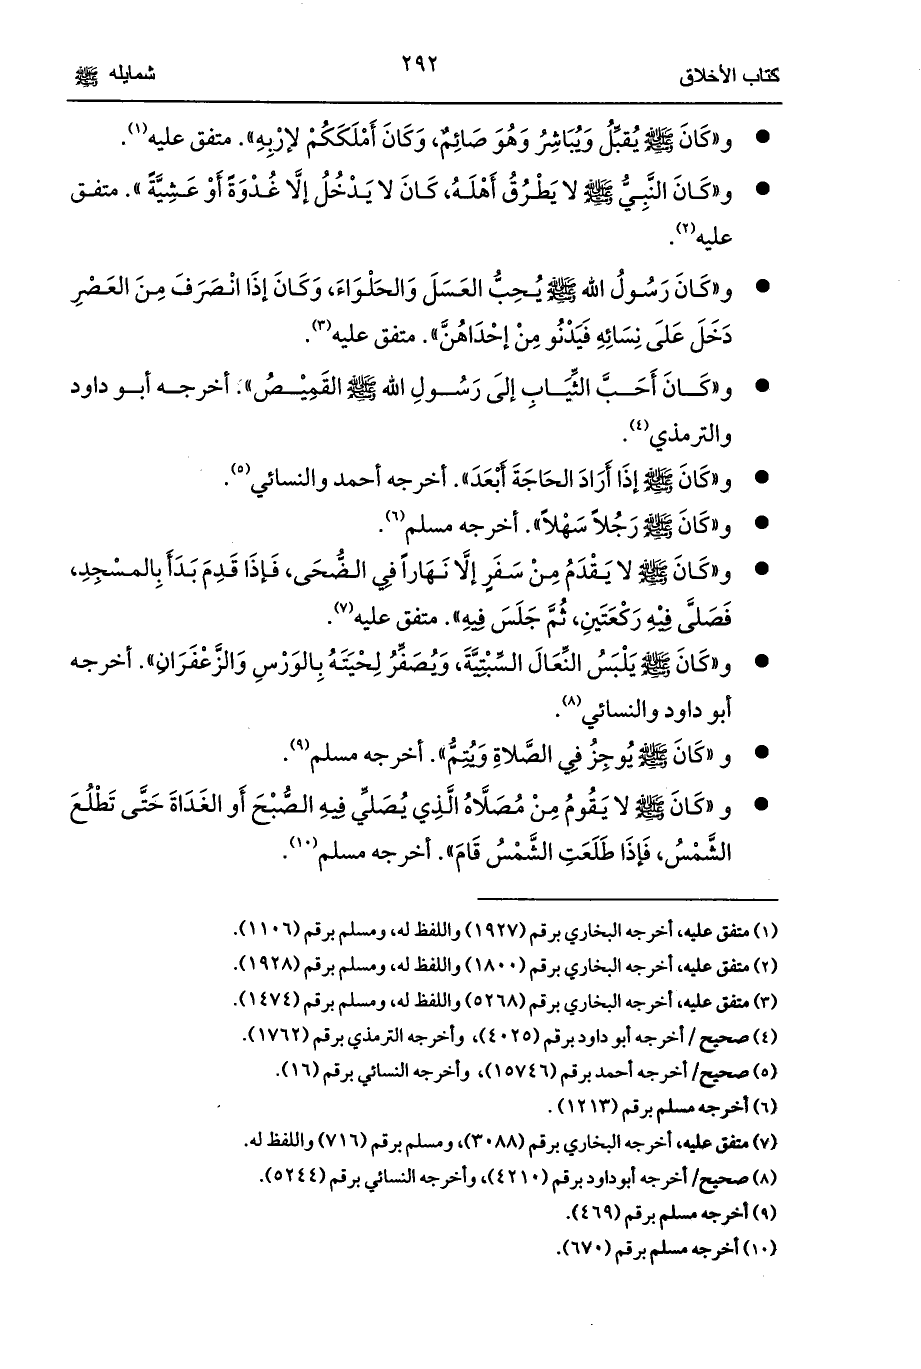 كتاب الأخلاق ٢٩٢ شمايله ﷺ
● و«كَانَ ﷺ يُقبِّلُ وَيُبَاشِرُ وَهُوَ صَائِمٌ، وَكَانَ أَمْلَكَكُمْ لإرْبِهِ». متفق عليه(١).
● و«كَـانَ النَّبِـيُّ ﷺ لا يَطْـرُقُ أَهْلَـهُ، كَـانَ لا يَـدْخُلُ إلَّا غُـدْوَةً أَوْ عَـشِيَّةً ». متفـق
عليه(٢).
● و«كَـانَ رَسُـولُ الله ﷺ يُـحِبُّ العَسَلَ وَالحَلْوَاءَ، وَكَـانَ إذَا انْـصَرَفَ مِـنَ العَـصْرِ
دَخَلَ عَلَى نِسَائِهِ فَيَدْنُو مِنْ إحْدَاهُنَّ». متفق عليه(٣).
● و«كَــانَ أَحَــبَّ الثِّيَــابِ إلَى رَسُــولِ الله ﷺ القَمِيْــصُ». أخرجــه أبــو داود
والترمذي(٤).
● و«كَانَ ﷺ إذَا أَرَادَ الحَاجَةَ أَبْعَدَ». أخرجه أحمد والنسائي(٥).
● و«كَانَ ﷺ رَجُلاً سَهْلاً». أخرجه مسلم(٦).
● و«كَـانَ ﷺ لا يَـقْدَمُ مِـنْ سَـفَرٍ إلَّا نَـهَاراً فِي الـضُّحَى، فَـإذَا قَـدِمَ بَـدَأَ بِالـمَسْجِدِ،
فَصَلَّى فِيْهِ رَكْعَتَينِ، ثُمَّ جَلَسَ فِيهِ». متفق عليه(٧).
● و«كَانَ ﷺ يَلْبَسُ النِّعَالَ السِّبْتِيَّةَ، وَيُصَفِّرُ لِحْيَتَهُ بِالوَرْسِ وَالزَّعْفَرَانِ». أخرجه
أبو داود والنسائي(٨).
● و «كَانَ ﷺ يُوجِزُ فِي الصَّلاةِ وَيُتِمُّ». أخرجه مسلم(٩).
● و «كَانَ ﷺ لا يَـقُومُ مِـنْ مُصَلَّاهُ الَّذِي يُصَلِّي فِيهِ الصُّبْحَ أَو الغَدَاةَ حَتَّى تَطْلُعَ
الشَّمْسُ، فَإذَا طَلَعَتِ الشَّمْسُ قَامَ». أخرجه مسلم(١٠).
(١) متفق عليه، أخرجه البخاري برقم (١٩٢٧) واللفظ له، ومسلم برقم (١١٠٦).
(٢) متفق عليه، أخرجه البخاري برقم (١٨٠٠) واللفظ له، ومسلم برقم (١٩٢٨).
(٣) متفق عليه، أخرجه البخاري برقم (٥٢٦٨) واللفظ له، ومسلم برقم (١٤٧٤).
(٤) صحيح / أخرجه أبو داود برقم (٤٠٢٥)، وأخرجه الترمذي برقم (١٧٦٢).
(٥) صحيح/ أخرجه أحمد برقم (١٥٧٤٦)، وأخرجه النسائي برقم (١٦).
(٦) أخرجه مسلم برقم (١٢١٣) .
(٧) متفق عليه، أخرجه البخاري برقم (٣٠٨٨)، ومسلم برقم (٧١٦) واللفظ له.
(٨) صحيح/ أخرجه أبوداود برقم (٤٢١٠)، وأخرجه النسائي برقم (٥٢٤٤).
(٩) أخرجه مسلم برقم (٤٦٩).
(١٠) أخرجه مسلم برقم (٦٧٠).